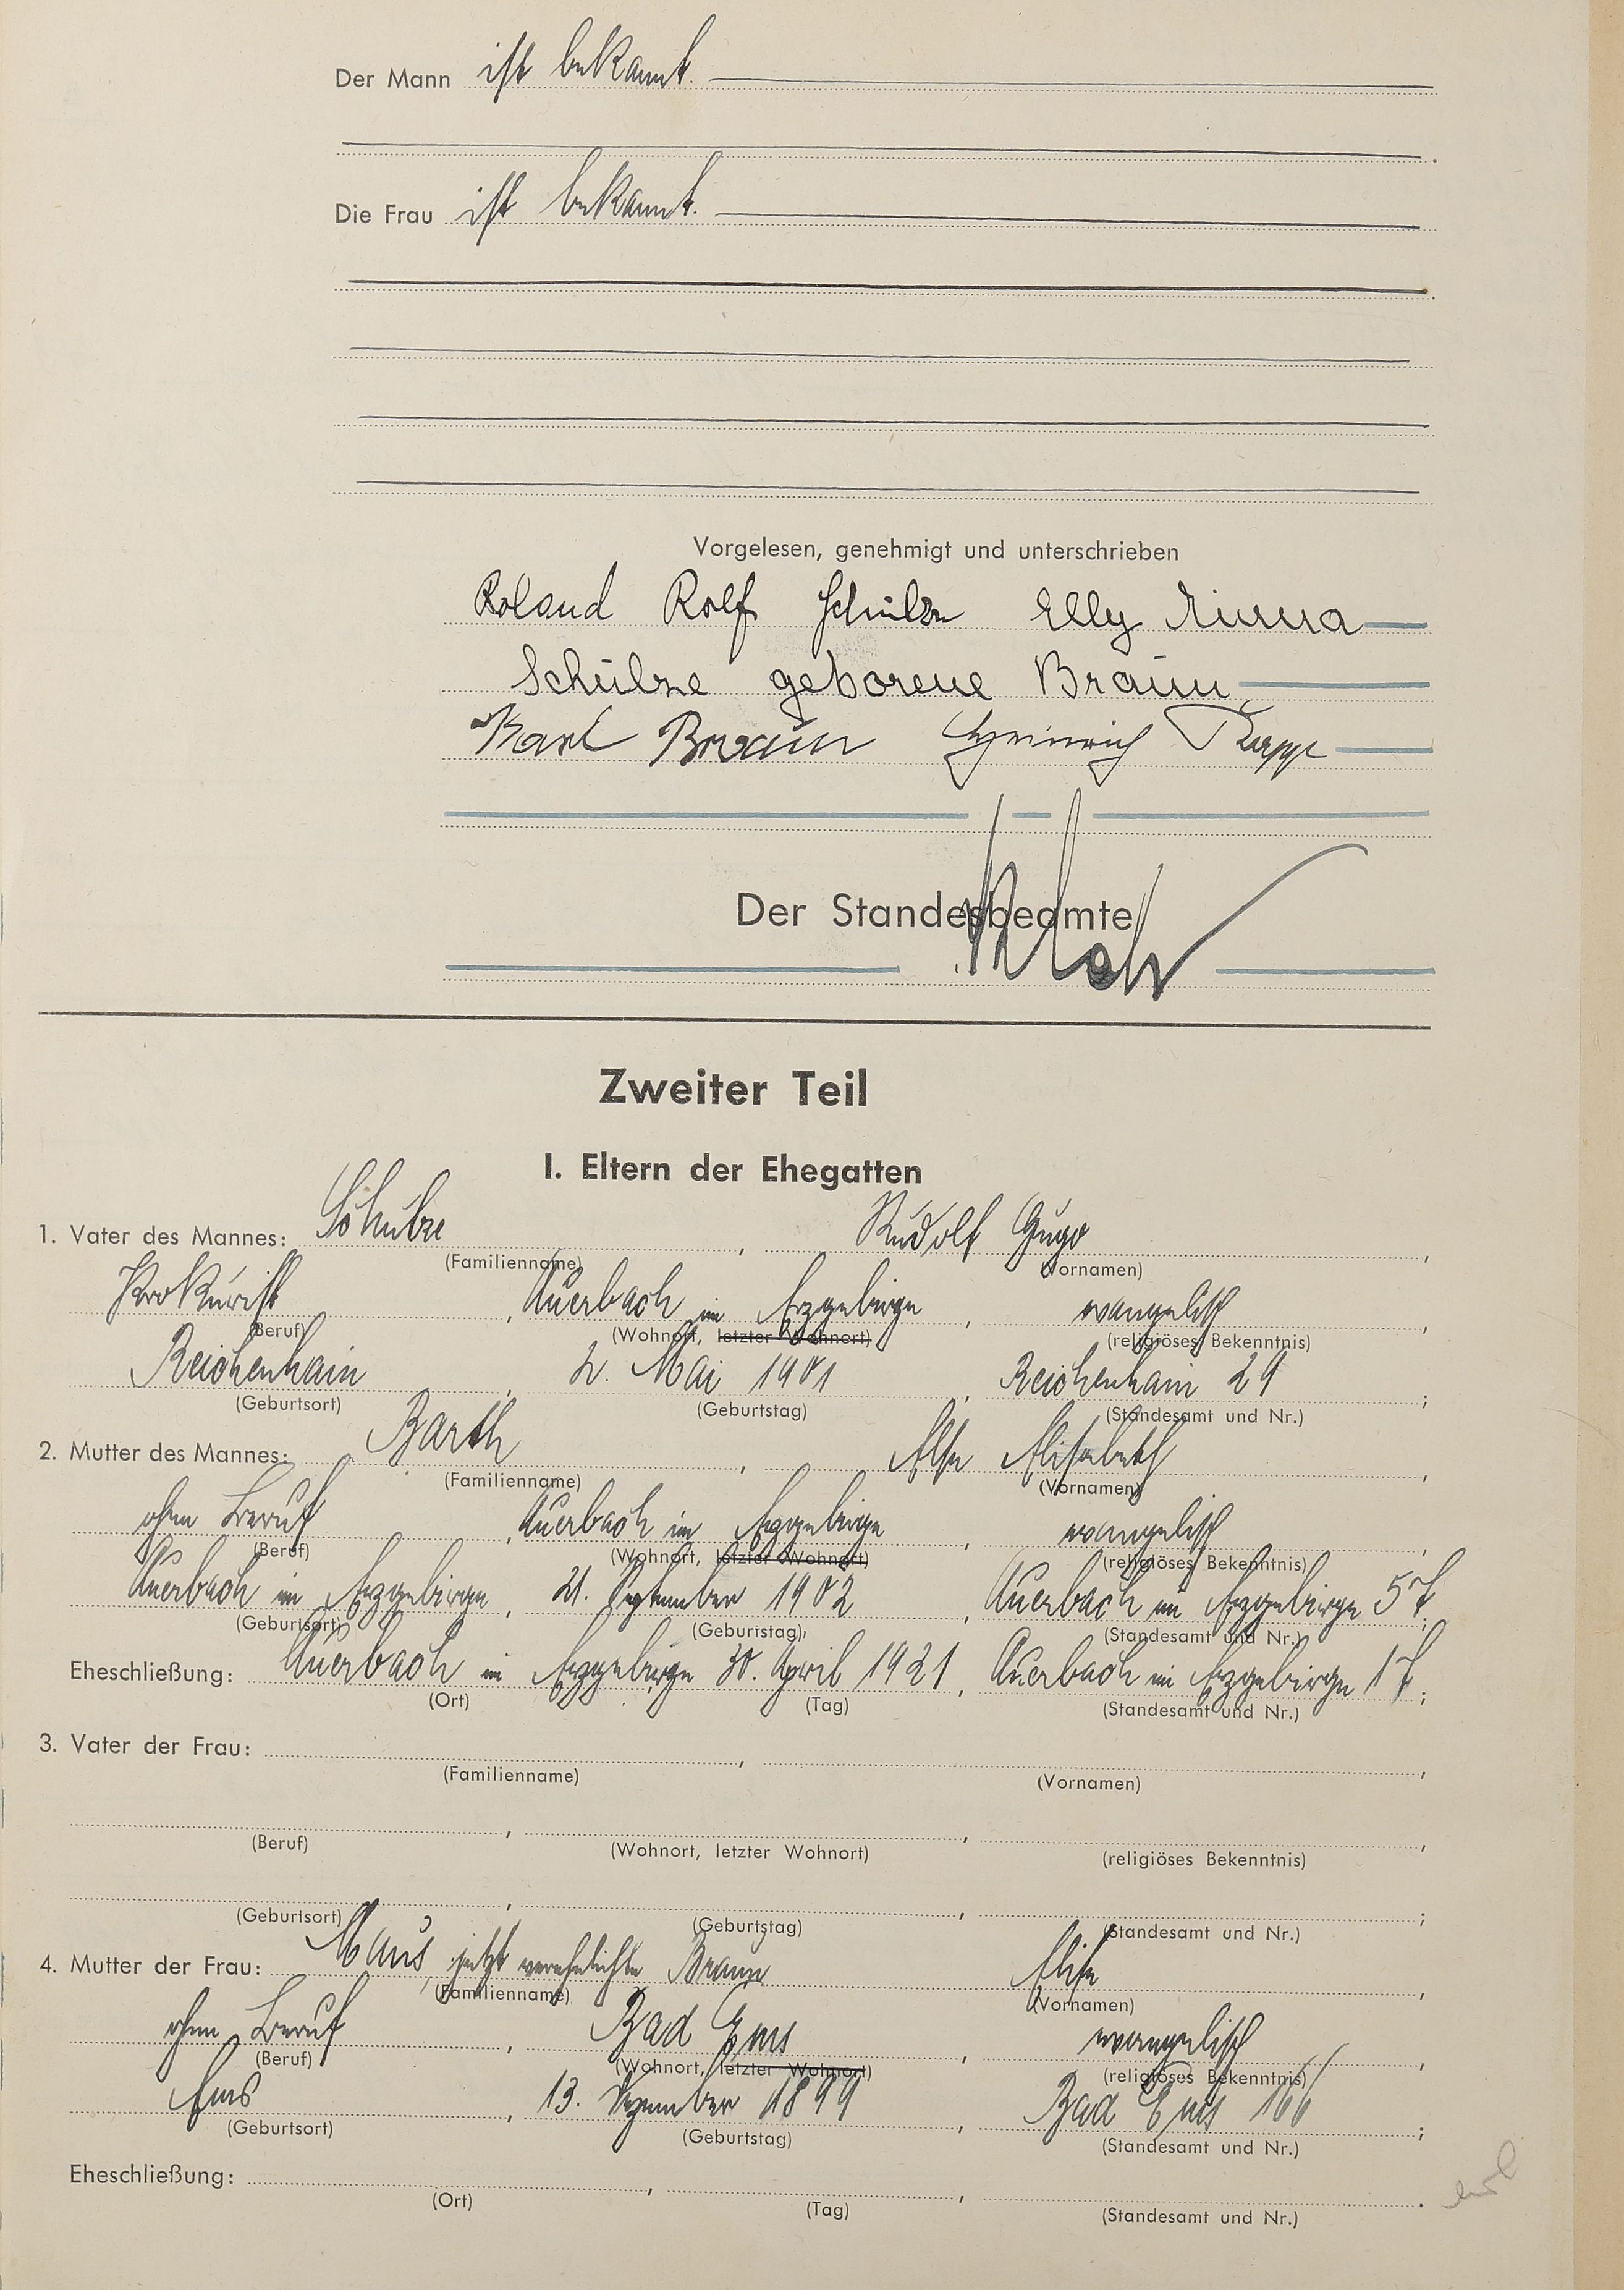 Der Mann ist bekannt.
Die Frau ist bekannt.
Vorgelesen, genehmigt und unterschrieben
Roland Rolf Schulze Elly Minna
Schulze geborene Braun
Karl Braun Heinrich
Der Standesbeamte
Zweiter Teil
I. Eltern der Ehegatten
1. Vater des Mannes: Schulze, Rudolf Hugo,
(Familienname) (Vornamen)
Prokurist, Auerbach im Erzgebirge, evangelisch,
(Beruf) (Wohnort, letzter Wohnort) (religiöses Bekenntnis)
Reichenhain, 2. Mai 1901, Reichenhain 29;
(Geburtsort) (Geburtstag) (Standesamt und Nr.)
2. Mutter des Mannes: Barth, Else Elisabeth,
(Familienname) (Vornamen)
ohne Beruf, Auerbach im Erzgebirge, evangelisch,
(Beruf) (Wohnort, letzter Wohnort) (religiöses Bekenntnis)
Auerbach im Erzgebirge, 21. September 1902, Auerbach im Erzgebirge 57;
(Geburtsort) (Geburtstag) (Standesamt und Nr.)
Eheschließung: Auerbach im Erzgebirge 30. April 1921, Auerbach im Erzgebirge 17;
(Ort) (Tag) (Standesamt und Nr.)
3. Vater der Frau: , ,
(Familienname) (Vornamen)
, , ,
(Beruf) (Wohnort, letzter Wohnort) (religiöses Bekenntnis)
, , ;
(Geburtsort) (Geburtstag) (Standesamt und Nr.)
4. Mutter der Frau: Maus, jetzt verehelichte Braun Elise,
(Familienname) (Vornamen)
ohne Beruf, Bad Ems, evangelisch,
(Beruf) (Wohnort, letzter Wohnort) (religiöses Bekenntnis)
Ems, 13. Dezember 1899, Bad Ems 166;
(Geburtsort) (Geburtstag) (Standesamt und Nr.)
Eheschließung: , , .
(Ort) (Tag) (Standesamt und Nr.)